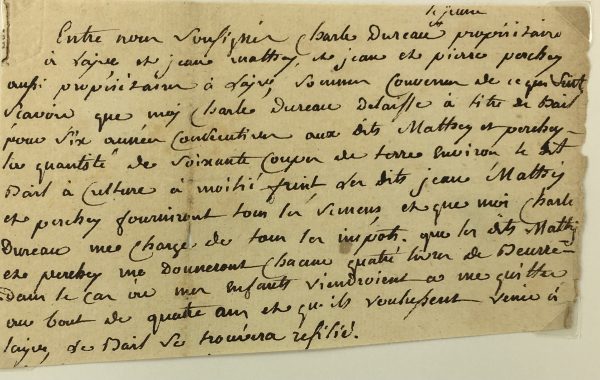 le jeune
Entre nous Soussignés Charle Dureau propriétaire
à Layré et jean mathey, et jean et pierre perchey
aussi propriétaires à Layré, sommes Convenus de ce qui suit
Scavoir que moj Charle Dureau delaisse à titre de Bail
pour Six années Consecutives aux dits Mathey et perchey
la quantité de Soixante Coupes de terre Environ le dit
Bail à Culture à moitié fruit les dits jean Mathey
et perchey fourniront tous les Semens et que moi Charle
Dureau me Charge de tous les impôts. que les dits Mathey
et perchey me donneront Chacun quatre livres de Beurre
dans le cas où mes Enfants viendroient a me quitter
au bout de quatre ans et qu'ils voulussent venir à
layré, le Bail se trouvera résilié.